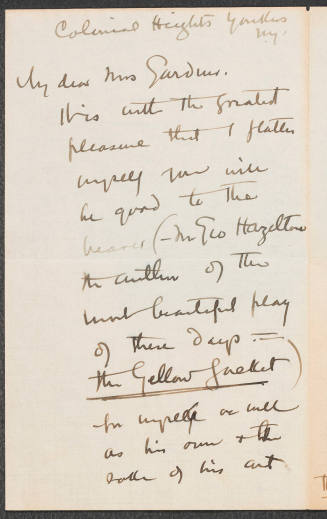 Colonial Heights Yonkers
Ny.
My dear Mrs Gardner.
It is with the greatest
pleasure that I flatter
myself you will
be good to the
bearer (– Mr Geo Hazelton
the author of the
most beautiful play
of these days –
the Yellow Jacket)
for myself as well
as his own & the
sake of his art